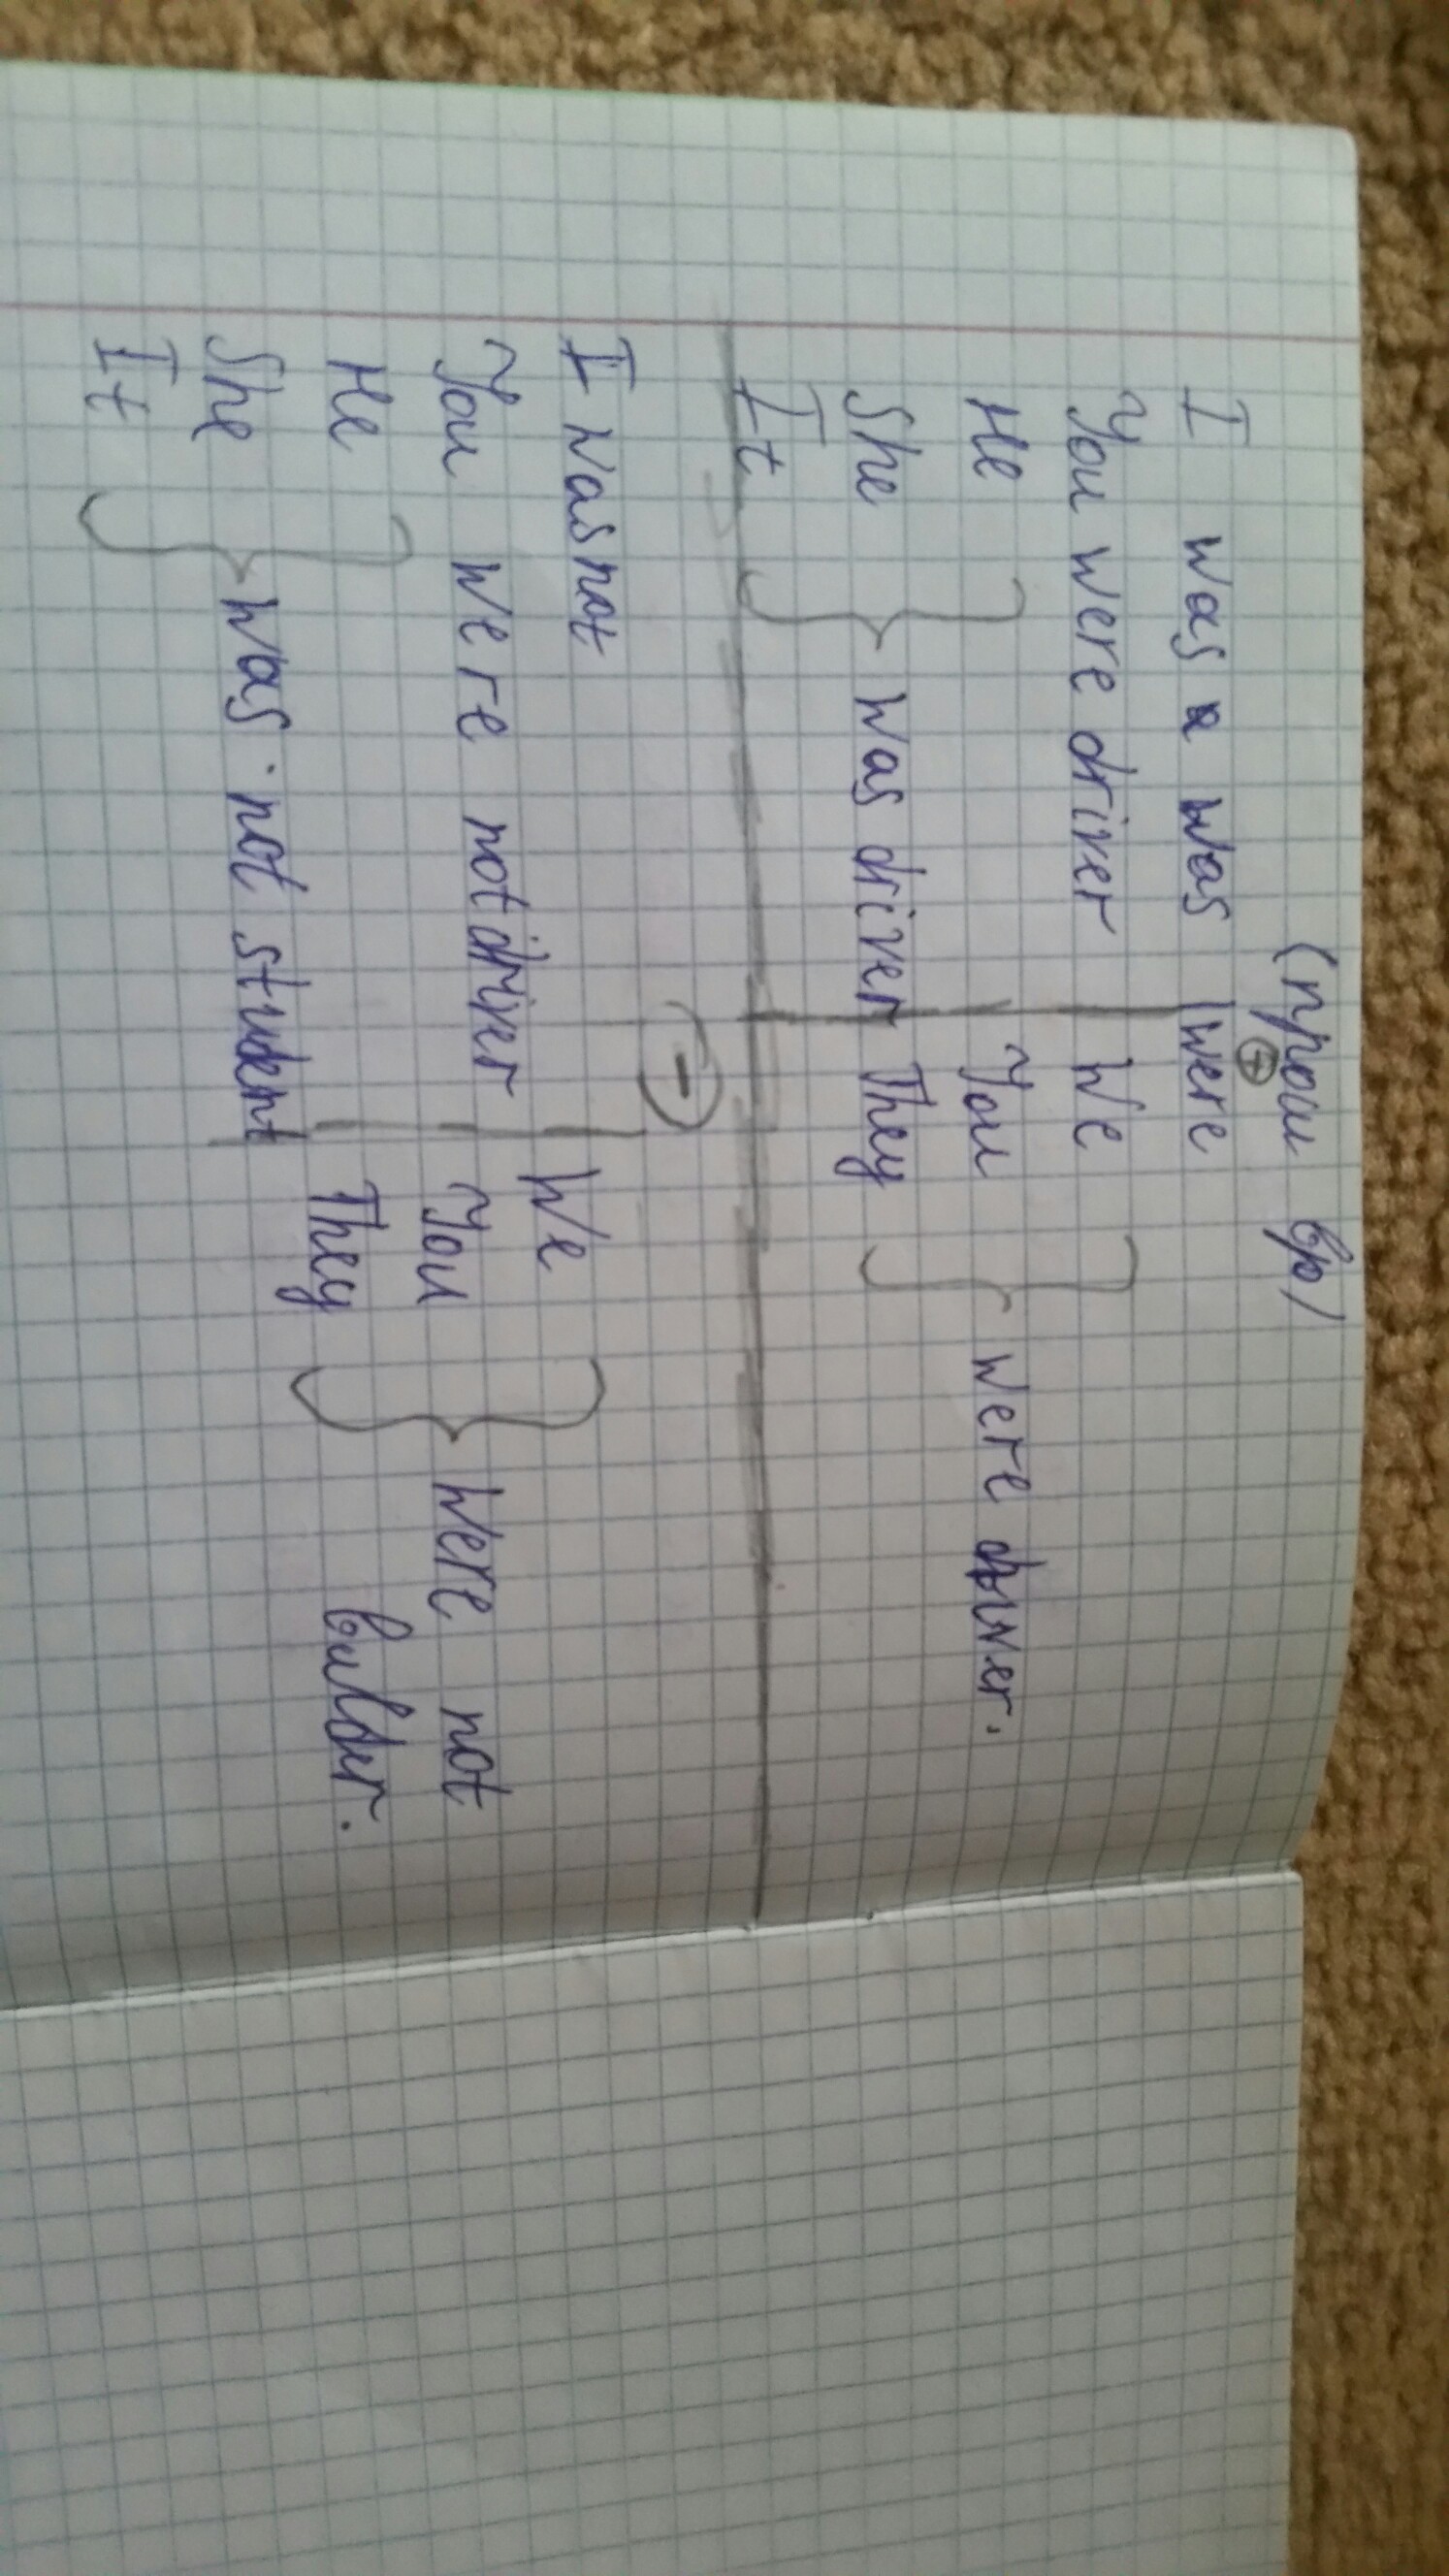 (прош вр)
+
I was a was | were
You were driver
We
He
You
were driver.
She
was driver
They
It
-
I was not
We
You were not driver
You
were not
He
They
bulder.
She
was not student
It